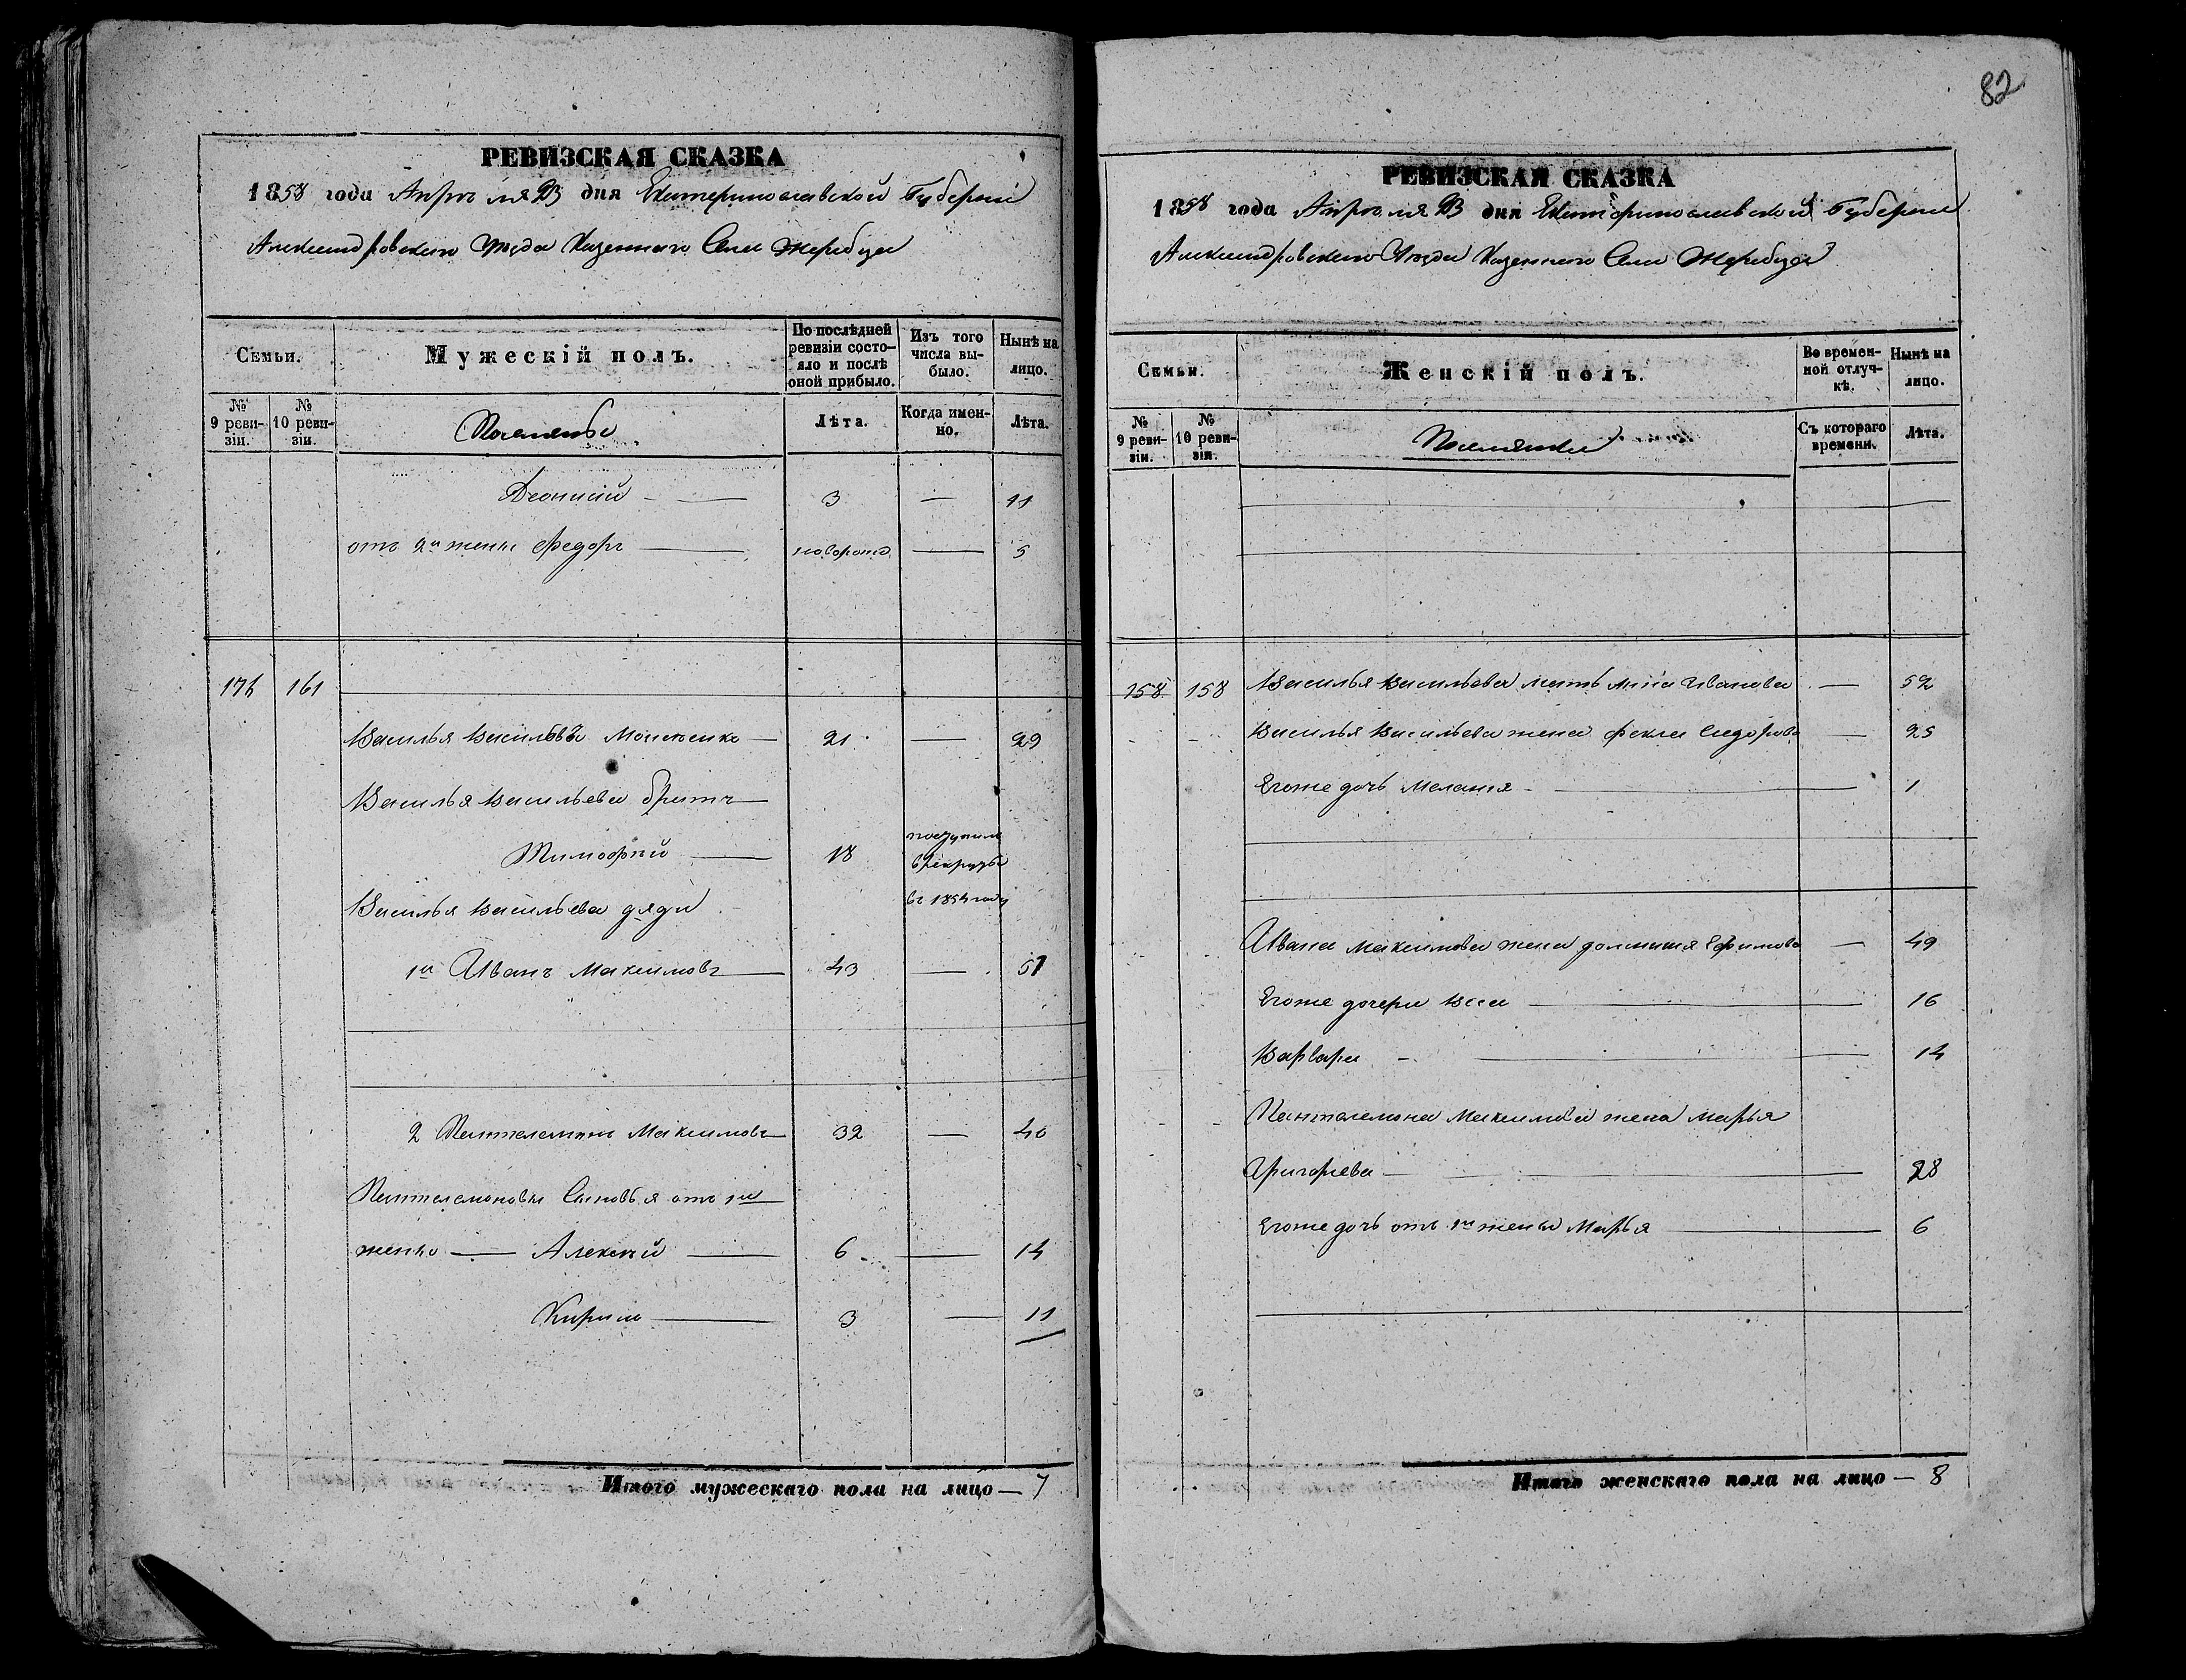 82
РЕВИЗСКАЯ СКАЗКА
1858 года Апреля дня Екатеринославской Губерніи
Александровского Уезда Казенного Села Жеребца
Семьи.
Мужескій полъ.
По послѣдней ревизіи состояло и послѣ оной прибыло.
Изъ того числа выбыло.
Нынѣ на лицо.
№ 9 ревизіи.
№ 10 ревизіи.
Лѣта.
Когда именно.
Лѣта.
3 — 11
отъ 2й жены Федоръ новорожд — 5
161
Василья Васильевъ 21 — 29
Василья Васильева братъ
Тимофей 18 поступилъ
в рекруты
въ 1854 году
Василья Васильева дяди
1й Иванъ Максимовъ 43 — 51
2 Пантелемонъ Максимовъ 32 — 40
Пантелемоновы Сыновья отъ 1й
жены — Алексей 6 — 14
Кирила 3 — 11
Итого мужескаго пола на лицо — 7
РЕВИЗСКАЯ СКАЗКА
1858 года Апреля дня Екатеринославской Губерніи
Александровского Уезда Казенного Села Жеребца
Семьи.
Женскій полъ.
Во временной отлучкѣ.
Нынѣ на лицо.
№ 9 ревизіи.
№ 10 ревизіи.
Съ котораго времени.
Лѣта.
158 158 Василья Васильева мать Иванова — 52
Василья Васильева жена Фекла Сидорова — 25
Егоже дочь Мелания — 1
Ивана Максимова жена Ефимова — 49
Егоже дочери 16
Варвара — 14
Пантелемона Максимова жена Марья
Григорьева — 28
Егоже дочь отъ 1й жены Марья — 6
Итого женскаго пола на лицо — 8